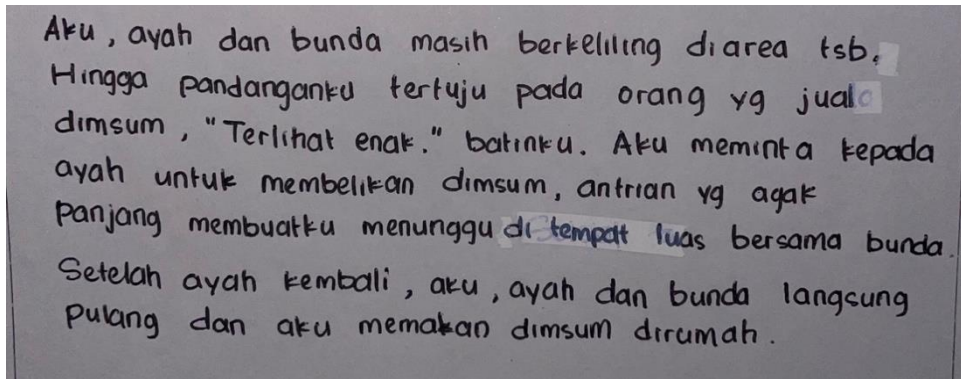 Aku, ayah dan bunda masih berkeliling diarea tsb.
Hingga pandanganku tertuju pada orang yg jual
dimsum, "Terlihat enak." batinku. Aku meminta kepada
ayah untuk membelikan dimsum, antrian yg agak
panjang membuatku menunggu di tempat luas bersama bunda.
Setelah ayah kembali, aku, ayah dan bunda langsung
pulang dan aku memakan dimsum dirumah.